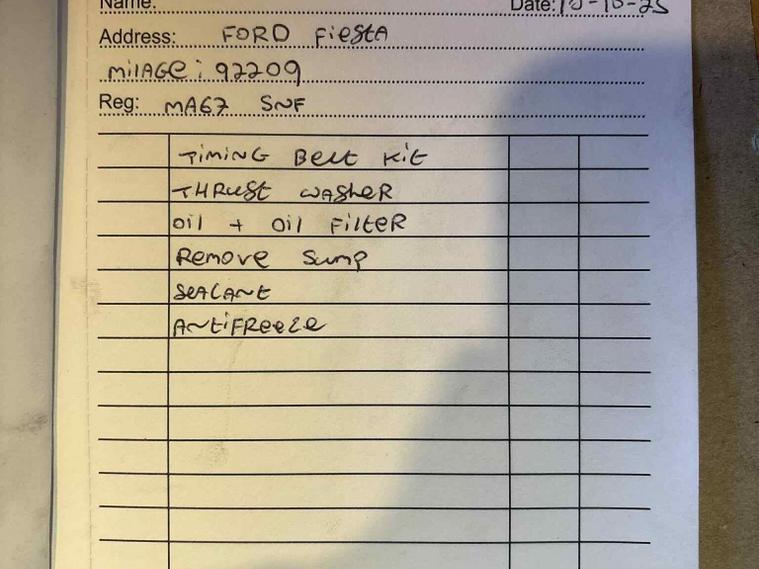 Name:
Date: 10-10-25
Address: FORD FiestA
milAGe: 92209
Reg: MA67 SNF
TiMiNG Belt Kit
THRust WASHeR
Oil + Oil FilteR
Remove Sump
SeALANt
ANtiFReeze